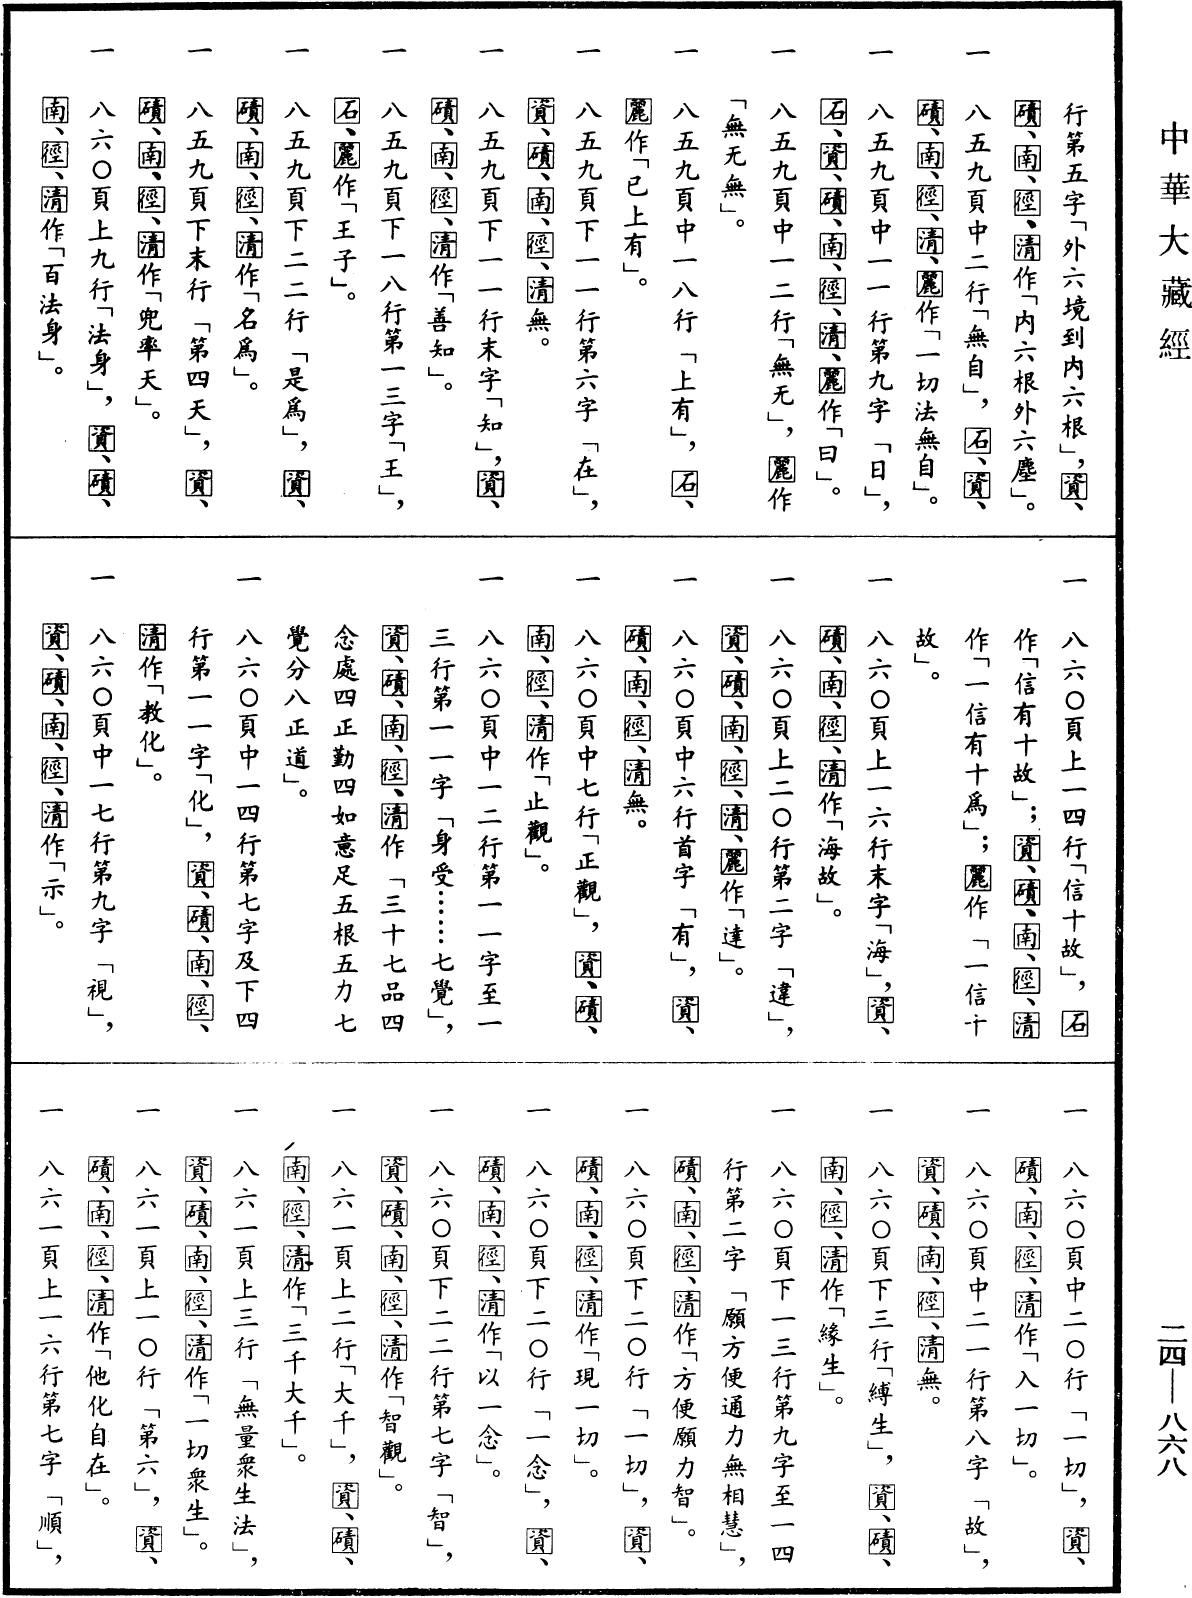 中華大藏經
二四—八六八
行第五字「外六境到内六根」，資、
磧、南、徑、清作「内六根外六塵」。
一 八五九頁中二行「無自」，石、資、
磧、南、徑、清、麗作「一切法無自」。
一 八五九頁中一一行第九字「日」，
石、資、磧、南、徑、清、麗作「曰」。
一 八五九頁中一二行「無无」，麗作
「無无無」。
一 八五九頁中一八行「上有」，石、
麗作「已上有」。
一 八五九頁下一一行第六字「在」，
資、磧、南、徑、清無。
一 八五九頁下一一行末字「知」，資、
磧、南、徑、清作「善知」。
一 八五九頁下一八行第一三字「王」，
石、麗作「王子」。
一 八五九頁下二二行「是爲」，資、
磧、南、徑、清作「名爲」。
一 八五九頁下末行「第四天」，資、
磧、南、徑、清作「兜率天」。
一 八六〇頁上九行「法身」，資、磧、
南、徑、清作「百法身」。
一 八六〇頁上一四行「信十故」，石
作「信有十故」；資、磧、南、徑、清
作「一信有十爲」；麗作「一信十
故」。
一 八六〇頁上一六行末字「海」，資、
磧、南、徑、清作「海故」。
一 八六〇頁上二〇行第二字「違」，
資、磧、南、徑、清、麗作「達」。
一 八六〇頁中六行首字「有」，資、
磧、南、徑、清無。
一 八六〇頁中七行「正觀」，資、磧、
南、徑、清作「止觀」。
一 八六〇頁中一二行第一一字至一
三行第一一字「身受……七覺」，
資、磧、南、徑、清作「三十七品四
念處四正勤四如意足五根五力七
覺分八正道」。
一 八六〇頁中一四行第七字及下四
行第一一字「化」，資、磧、南、徑、
清作「教化」。
一 八六〇頁中一七行第九字「視」，
資、磧、南、徑、清作「示」。
一 八六〇頁中二〇行「一切」，資、
磧、南、徑、清作「入一切」。
一 八六〇頁中二一行第八字「故」，
資、磧、南、徑、清無。
一 八六〇頁下三行「縛生」，資、磧、
南、徑、清作「緣生」。
一 八六〇頁下一三行第九字至一四
行第二字「願方便通力無相慧」，
磧、南、徑、清作「方便願力智」。
一 八六〇頁下二〇行「一切」，資、
磧、南、徑、清作「現一切」。
一 八六〇頁下二〇行「一念」，資、
磧、南、徑、清作「以一念」。
一 八六〇頁下二二行第七字「智」，
資、磧、南、徑、清作「智觀」。
一 八六一頁上二行「大千」，資、磧、
南、徑、清作「三千大千」。
一 八六一頁上三行「無量衆生法」，
資、磧、南、徑、清作「一切衆生」。
一 八六一頁上一〇行「第六」，資、
磧、南、徑、清作「他化自在」。
一 八六一頁上一六行第七字「順」，